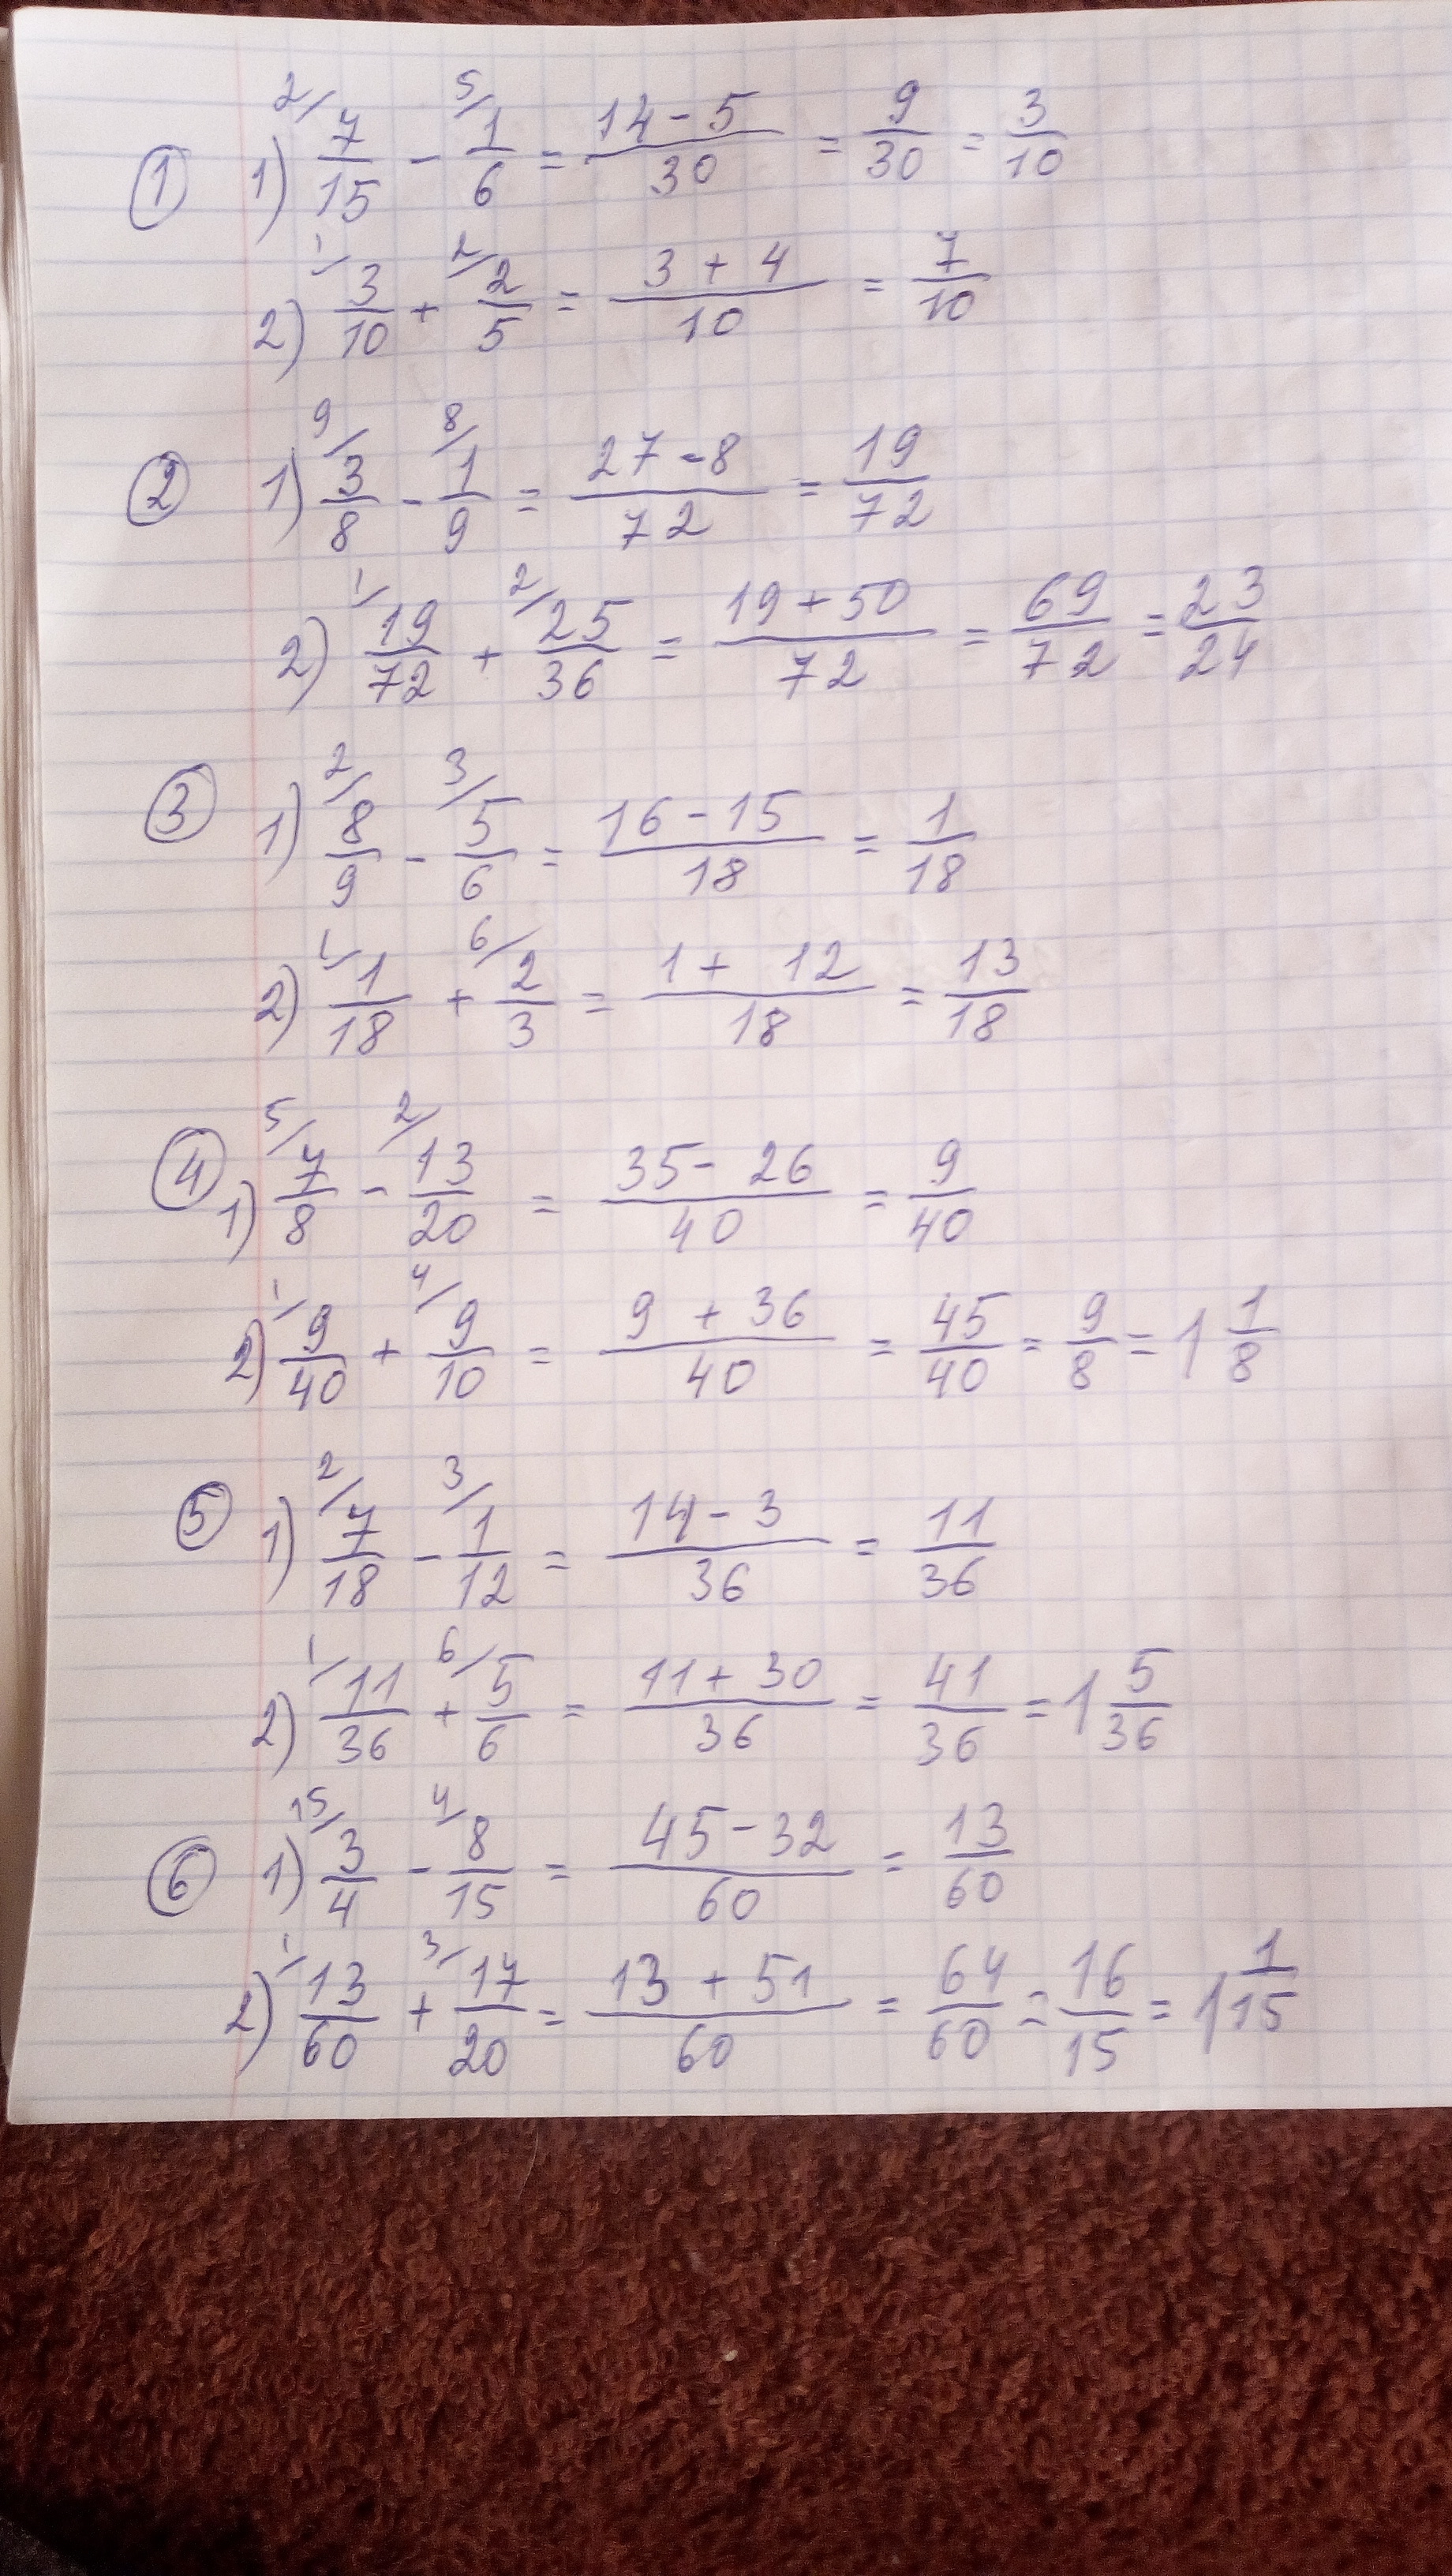 ① 1) ²/7/15 - ⁵/1/6 = 14-5/30 = 9/30 = 3/10
2) ¹/3/10 + ²/2/5 = 3+4/10 = 7/10
② 1) ⁹/3/8 - ⁸/1/9 = 27-8/72 = 19/72
2) ¹/19/72 + ²/25/36 = 19+50/72 = 69/72 = 23/24
③ 1) ²/8/9 - ³/5/6 = 16-15/18 = 1/18
2) ¹/1/18 + ⁶/2/3 = 1+12/18 = 13/18
④ 1) ⁵/7/8 - ²/13/20 = 35-26/40 = 9/40
2) ¹/9/40 + ⁴/9/10 = 9+36/40 = 45/40 = 9/8 = 1 1/8
⑤ 1) ²/7/18 - ³/1/12 = 14-3/36 = 11/36
2) ¹/11/36 + ⁶/5/6 = 11+30/36 = 41/36 = 1 5/36
⑥ 1) ¹⁵/3/4 - ⁴/8/15 = 45-32/60 = 13/60
2) ¹/13/60 + ³/17/20 = 13+51/60 = 64/60 = 16/15 = 1 1/15